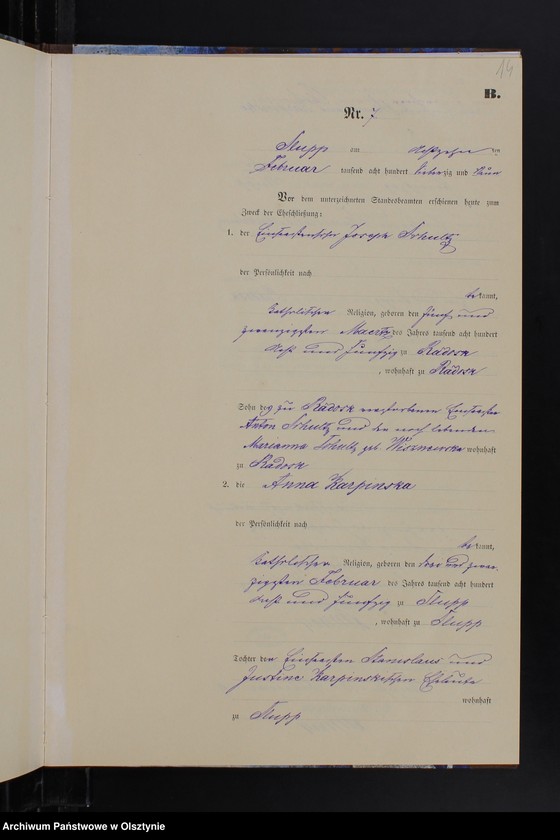 14
B.
Nr. 7
Slupp am den
Februar tausend acht hundert siebenzig und neun
Vor dem unterzeichneten Standesbeamten erschienen heute zum
Zweck der Eheschließung:
1. der Joseph Schultz
der Persönlichkeit nach
bekannt,
katholischer Religion, geboren den fünf und
zwanzigsten Maerz des Jahres tausend acht hundert
und fünfzig zu Radosk
, wohnhaft zu Radosk
Sohn des zu Radosk verstorbenen
Anton Schultz und der noch lebenden
Marianna Schultz geb. Wiszniewska wohnhaft
zu Radosk
2. die Anna Karpinska
der Persönlichkeit nach
bekannt,
katholischer Religion, geboren den drei und zwan-
zigsten Februar des Jahres tausend acht hundert
sechs und fünfzig zu Slupp
, wohnhaft zu Slupp
Tochter der Stanislaus und
Justine Karpinskischen Eheleute
wohnhaft
zu Slupp
Archiwum Państwowe w Olsztynie